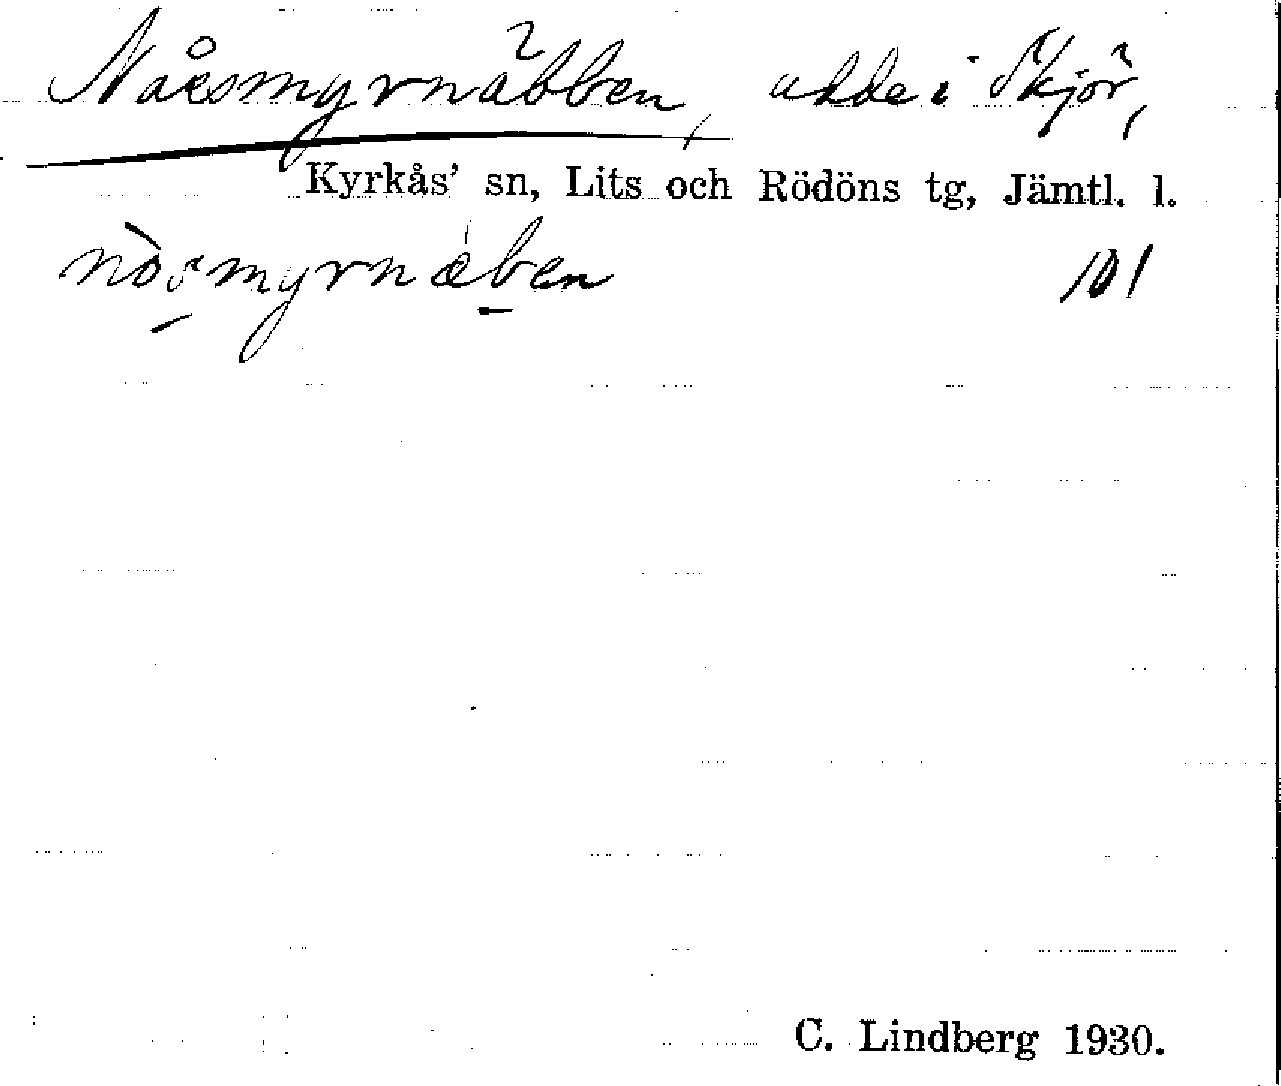 Nåësmyrnäbben, udde i Skjör,
Kyrkås' sn, Lits och Rödöns tg, Jämtl. l.
101
C. Lindberg 1930.